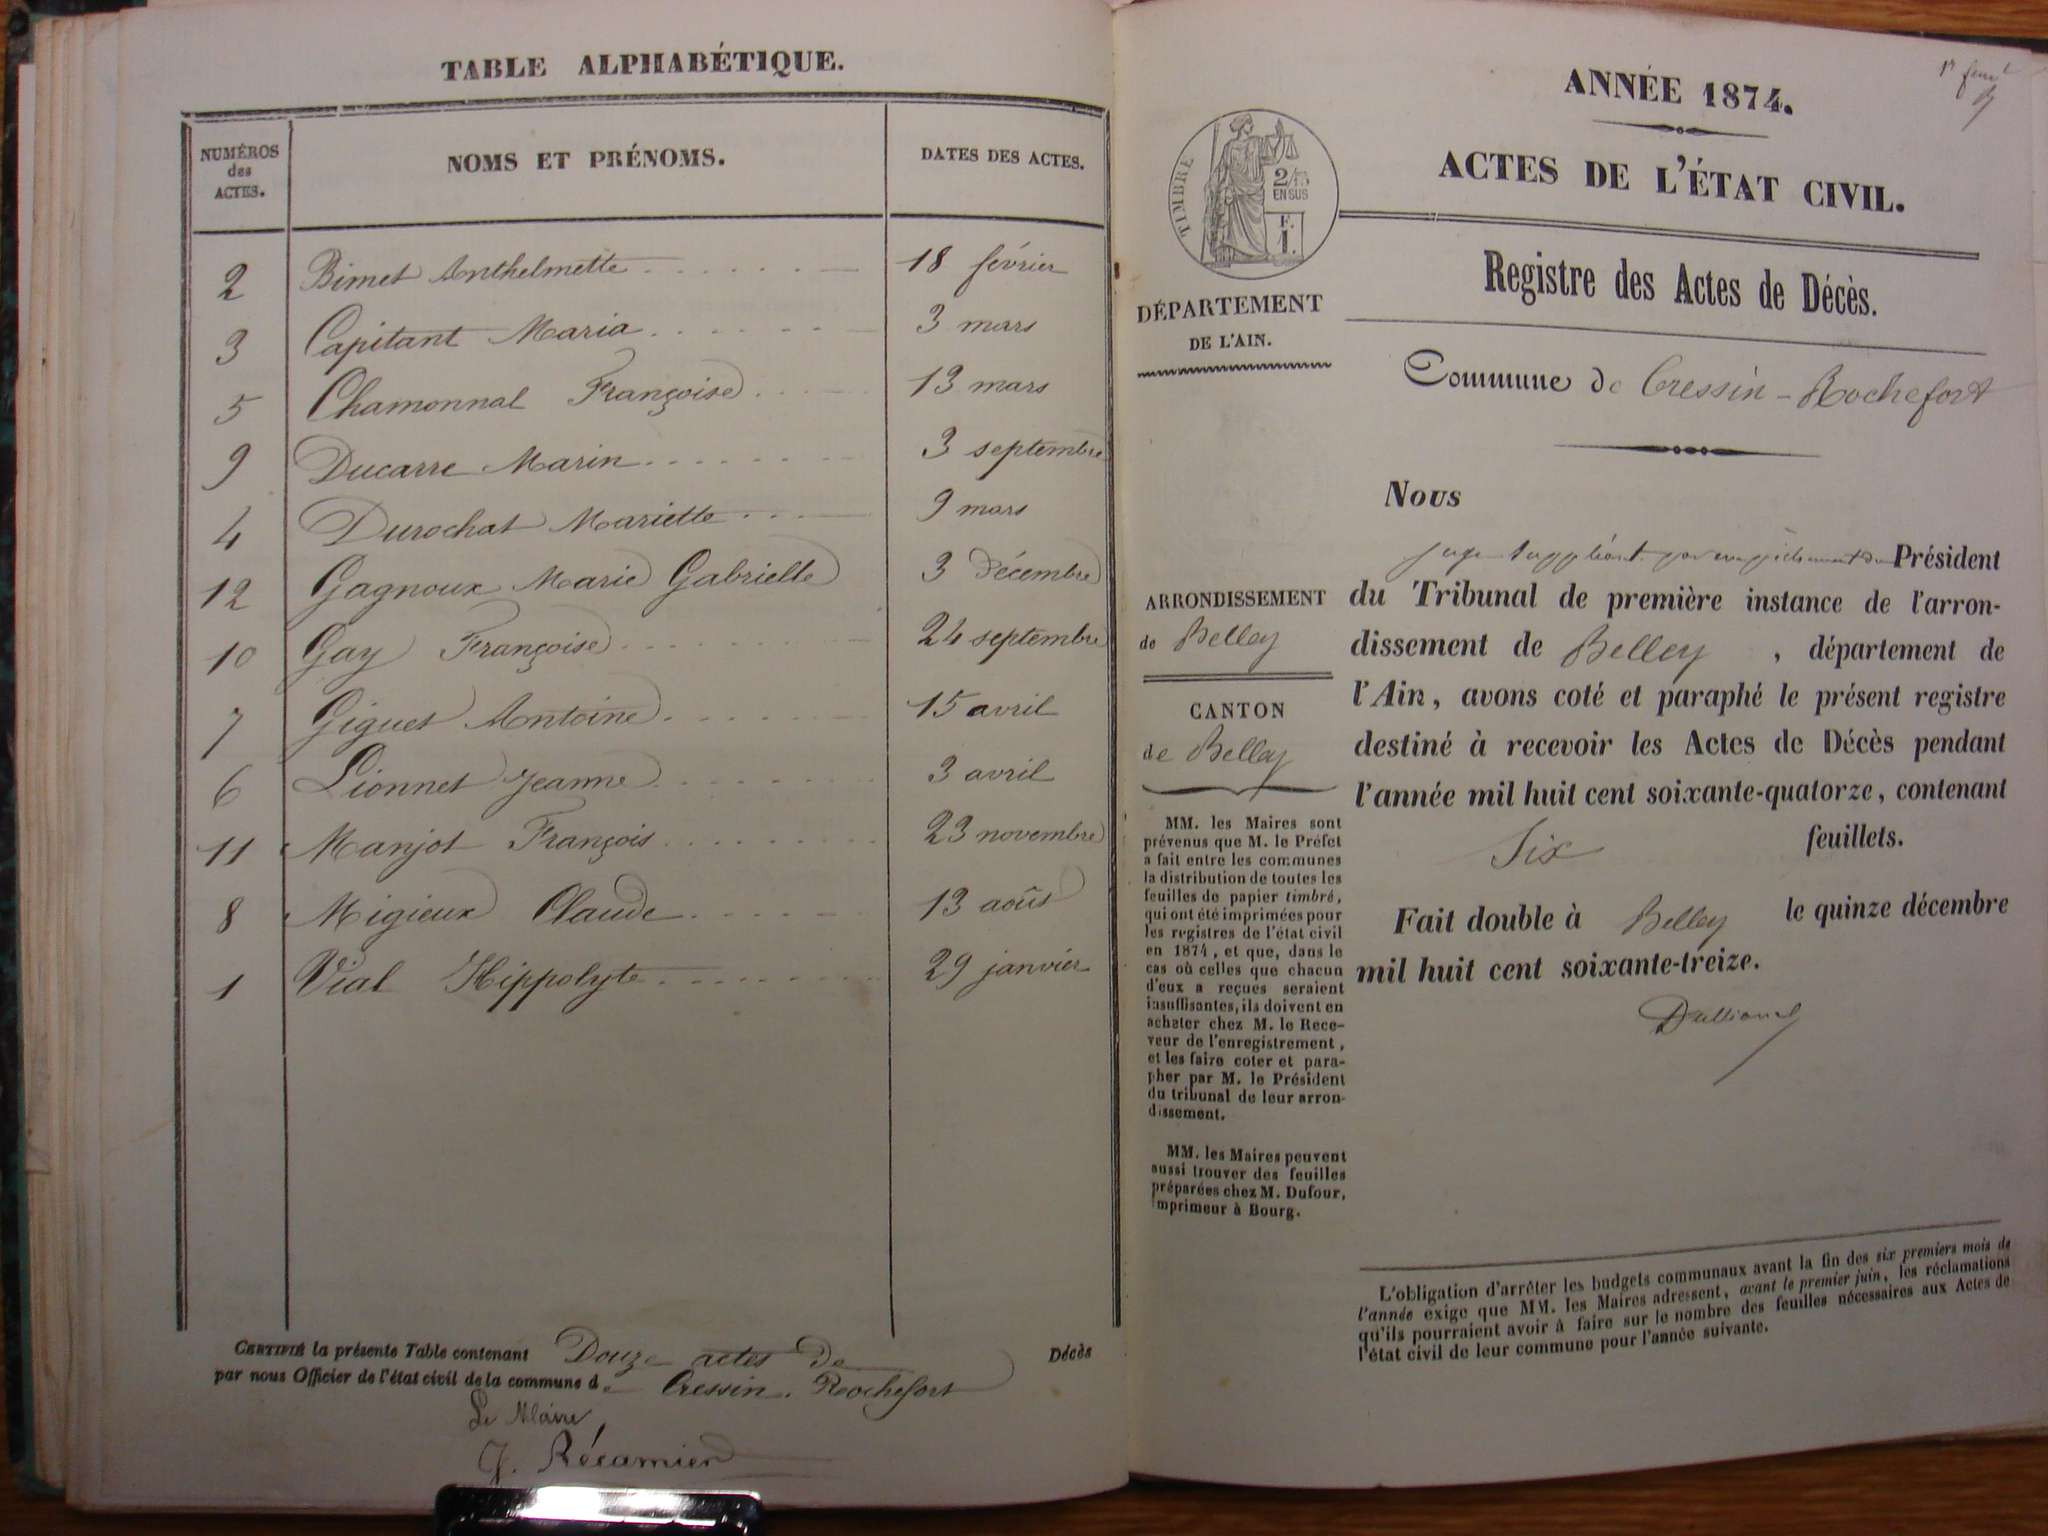 TABLE ALPHABÉTIQUE.
NUMÉROS des ACTES. NOMS ET PRÉNOMS. DATES DES ACTES.
2 Bimet Anthelmette 18 février
3 Capitant Maria 3 mars
5 Chamonnal Françoise 13 mars
9 Ducarre Marin 3 septembre
4 Durochat Mariette 9 mars
12 Gagnoux Marie Gabrielle 3 décembre
10 Gay Françoise 24 septembre
7 Giguet Antoine 15 avril
6 Lionnet Jeanne 3 avril
11 Manjot François 23 novembre
8 Migieux Claude 13 août
1 Vial Hippolyte 29 janvier
CERTIFIÉ la présente Table contenant Douze actes de Décès
par nous Officier de l'état civil de la commune de Cressin-Rochefort
Le Maire
J. Récamier
ANNÉE 1874.
ACTES DE L'ÉTAT CIVIL.
TIMBRE
2/15
EN SUS
F.
1.
DÉPARTEMENT
DE L'AIN.
ARRONDISSEMENT
de Belley
CANTON
de Belley
MM. les Maires sont
prévenus que M. le Préfet
a fait entre les communes
la distribution de toutes les
feuilles de papier timbré,
qui ont été imprimées pour
les registres de l'état civil
en 1874, et que, dans le
cas où celles que chacun
d'eux a reçues seraient
insuffisantes, ils doivent en
acheter chez M. le Rece-
veur de l'enregistrement,
et les faire coter et para-
pher par M. le Président
du tribunal de leur arron-
dissement.
MM. les Maires peuvent
aussi trouver des feuilles
préparées chez M. Dufour,
imprimeur à Bourg.
Registre des Actes de Décès.
Commune de Cressin-Rochefort
Nous
juge suppléant par empêchement du Président
du Tribunal de première instance de l'arron-
dissement de Belley, département de
l'Ain, avons coté et paraphé le présent registre
destiné à recevoir les Actes de Décès pendant
l'année mil huit cent soixante-quatorze, contenant
Six feuillets.
Fait double à Belley le quinze décembre
mil huit cent soixante-treize.
L'obligation d'arrêter les budgets communaux avant la fin des six premiers mois de
l'année exige que MM. les Maires adressent, avant le premier juin, les réclamations
qu'ils pourraient avoir à faire sur le nombre des feuilles nécessaires aux Actes de
l'état civil de leur commune pour l'année suivante.